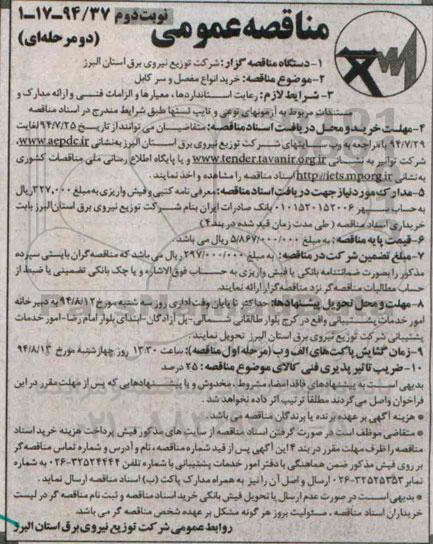 مناقصه عمومی
نوبت دوم ۹۴/۳۷-۱۷-۱
(دو مرحله‌ای)
۱-دستگاه مناقصه گزار: شرکت توزیع نیروی برق استان البرز
۲-موضوع مناقصه: خرید انواع مفصل و سر کابل
۳- شرایط لازم: رعایت استانداردها، معیارها و الزامات فنی و ارائه مدارک و
مستندات مربوط به آزمونهای نوعی و تایپ تستها طبق شرایط مندرج در اسناد مناقصه
۴-مهلت خرید و محل دریافت اسناد مناقصه: متقاضیان می توانند از تاریخ ۹۴/۷/۲۵ لغایت
۹۴/۷/۲۹ با مراجعه به وب سایتهای شرکت توزیع نیروی برق استان البرز به نشانی www.aepdc.ir،
شرکت توانیر به نشانی www.tender.tavanir.org.ir و یا پایگاه اطلاع رسانی ملی مناقصات کشوری
به نشانی http://iets.mporg.ir اسناد مناقصه را مشاهده و اخذ نمایند.
۵-مدارک مورد نیاز جهت دریافت اسناد مناقصه: معرفی نامه کتبی و فیش واریزی به مبلغ ۲۲۷,۰۰۰ ریال
به حساب سپهر ۰۱۰۱۵۲۰۱۵۲۰۰۶ بانک صادرات ایران بنام شرکت توزیع نیروی برق استان البرز بابت
خریداری اسناد مناقصه (طی مدت زمان قید شده در بند ۴)
۶-قیمت پایه مناقصه: به مبلغ ۵/۸۶۷/۰۰۰/۰۰۰ ریال می باشد.
۷-مبلغ تضمین شرکت در مناقصه: به مبلغ ۲۹۷/۰۰۰/۰۰۰ ریال می باشد که مناقصه گران بایستی سپرده
مذکور را بصورت ضمانتنامه بانکی یا فیش واریزی به حساب فوق‌الاشاره و یا چک بانکی تضمینی یا ضبط از
حساب مطالبات مناقصه گر نزد مناقصه گزار ارائه نمایند.
۸-مهلت و محل تحویل پیشنهادها: حداکثر تا پایان وقت اداری روز سه شنبه مورخ ۹۴/۸/۱۲ به دبیرخانه
امور خدمات پشتیبانی واقع در کرج بلوار طالقانی شمالی-پل آزادگان-ابتدای بلوار امام رضا-امور خدمات
پشتیبانی شرکت توزیع نیروی برق استان البرز تحویل نمایند.
۹-زمان گشایش پاکت های الف و ب (مرحله اول مناقصه): ساعت ۱۳:۳۰ روز چهارشنبه مورخ ۹۴/۸/۱۳
۱۰-ضریب تاثیر پذیری فنی کالای موضوع مناقصه: ۲۵ درصد
بدیهی است به پیشنهادهای فاقد امضاء، مشروط، مخدوش و یا پیشنهادهایی که پس از مهلت مقرر در این
فراخوان واصل می گردند مطلقا ترتیب اثر داده نخواهد شد.
* هزینه آگهی بر عهده برنده یا برندگان مناقصه می باشد.
* متقاضی موظف است در صورت گرفتن اسناد مناقصه از سایت های مذکور فیش پرداخت هزینه خرید اسناد
مناقصه را ظرف مهلت مقرر در بند ۴ این آگهی پس از قید شماره مناقصه، نام و آدرس و شماره تماس مناقصه گر
بر روی فیش مذکور ضمن هماهنگی با دفتر امور خدمات پشتیبانی با شماره تلفن ۳۲۵۲۴۴۴۲-۰۲۶ به شماره
نمابر ۳۲۵۲۵۳۵۳-۰۲۶ ارسال و اصل آن را نیز به همراه مدارک پاکت (ب) اسناد مناقصه ارسال نماید.
* بدیهی است در صورت عدم ارسال یا تحویل فیش بانکی خرید اسناد مناقصه و ثبت نام مناقصه گر در لیست
خریداران اسناد مناقصه، مسئولیت بروز هر گونه مشکل بر عهده شخص مناقصه گر می باشد.
روابط عمومی شرکت توزیع نیروی برق استان البرز